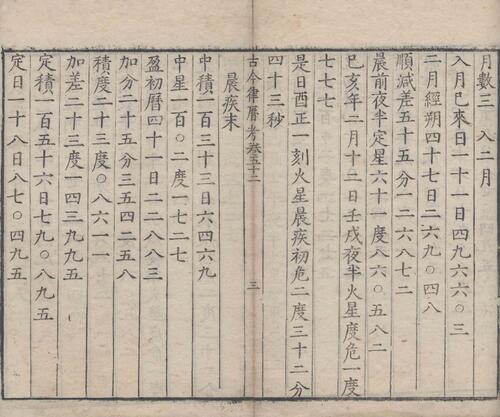 月數三入二月
入月已來日一十一日四九六六〇三
二月經朔四十七日二六九〇四八
順減差五十五分一二六八七二
晨前夜半定星六十一度八六〇五八二
己亥年二月十二日壬戌夜半火星度危一度
七七七
是日酉正一刻火星晨疾初危二度三十二分
四十三秒
古今律曆考卷五十二
三
晨疾末
中積一百三十三日六四六九
中星一百〇二度一七二七
盈初曆四十一日二二八八三
加分二十五分三五四二五八
積度二十三度〇八六一一
加差二十三度一四三九九五
定積一百五十六日七九〇八九五
定日一十八日八七〇四九五